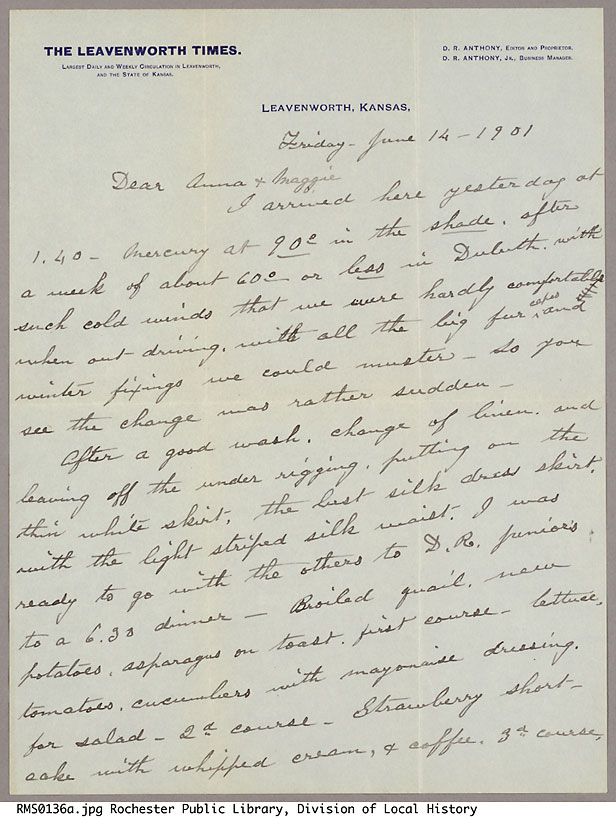 THE LEAVENWORTH TIMES.
LARGEST DAILY AND WEEKLY CIRCULATION IN LEAVENWORTH,
AND THE STATE OF KANSAS.
D. R. ANTHONY, EDITOR AND PROPRIETOR.
D. R. ANTHONY, JR., BUSINESS MANAGER.
LEAVENWORTH, KANSAS,
Friday - June 14 - 1901
Dear Anna & Maggie
I arrived here yesterday at
1.40 - Mercury at 90° in the shade. after
a week of about 60° or less in Duluth. with
such cold winds that we were hardly comfortable
when out driving. with all the big fur capes and
winter fixings we could muster - so you
see the change was rather sudden -
After a good wash. change of linen. and
leaving off the under rigging. putting on the
thin white skirt, the best silk dress skirt.
with the light striped silk waist. I was
ready to go with the others to D.R. juniors
to a 6.30 dinner - Broiled quail. new
potatoes. asparagus on toast. first course - lettuce.
tomatoes. cucumbers with mayonaise dressing.
for salad - 2d course - Strawberry short-
cake with whipped cream, & coffee. 3d course,
RMS0136a.jpg Rochester Public Library, Division of Local History